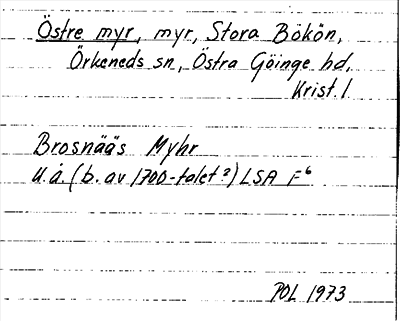 Östre myr, myr, Stora Bökön,
Örkeneds sn, Östra Göinge hd,
Krist. l
Brosnääs Myhr
U.å. (b. av 1700-talet ?) LSA F 6
POL 1973